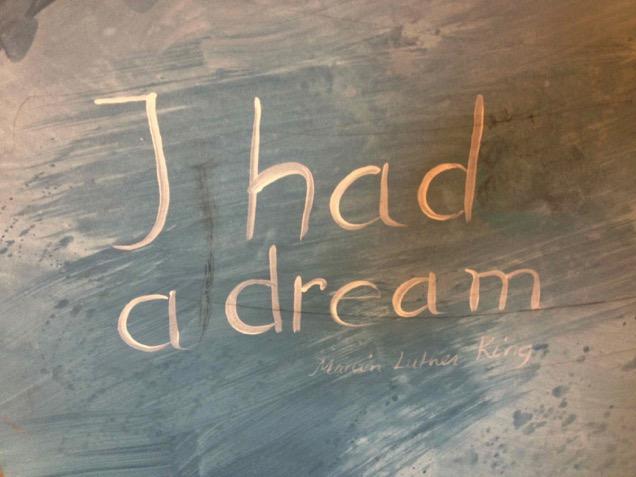 I had
a dream
Martin Luther King